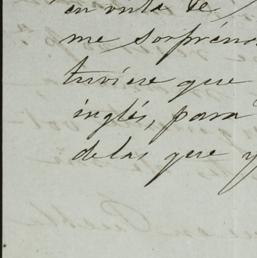 en vista de
me sorpren
tuviese que
inglés, para
delas que y